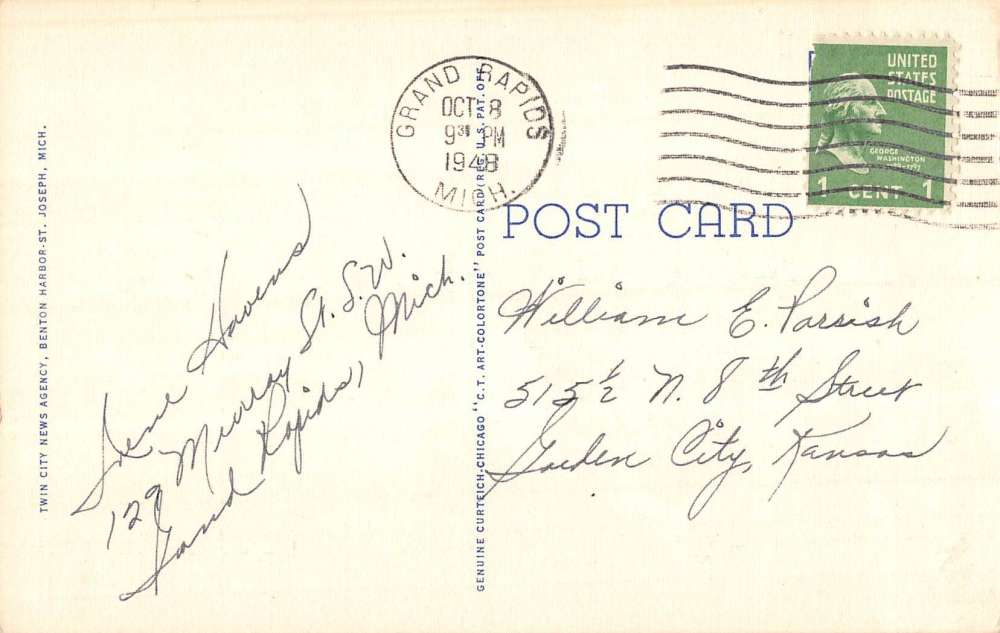 TWIN CITY NEWS AGENCY, BENTON HARBOR-ST. JOSEPH, MICH.
Irene Havens
129 Murray St. S.W.
Grand Rapids, Mich.
GENUINE CURTEICH-CHICAGO "C.T. ART-COLORTONE" POST CARD (REG. U.S. PAT. OFF.
GRAND RAPIDS
OCT 8
9 PM
1948
MICH.
UNITED
STATES
POSTAGE
GEORGE
WASHINGTON
1 CENT 1
POST CARD
William E. Parrish
515½ N. 8th Street
Garden City, Kansas